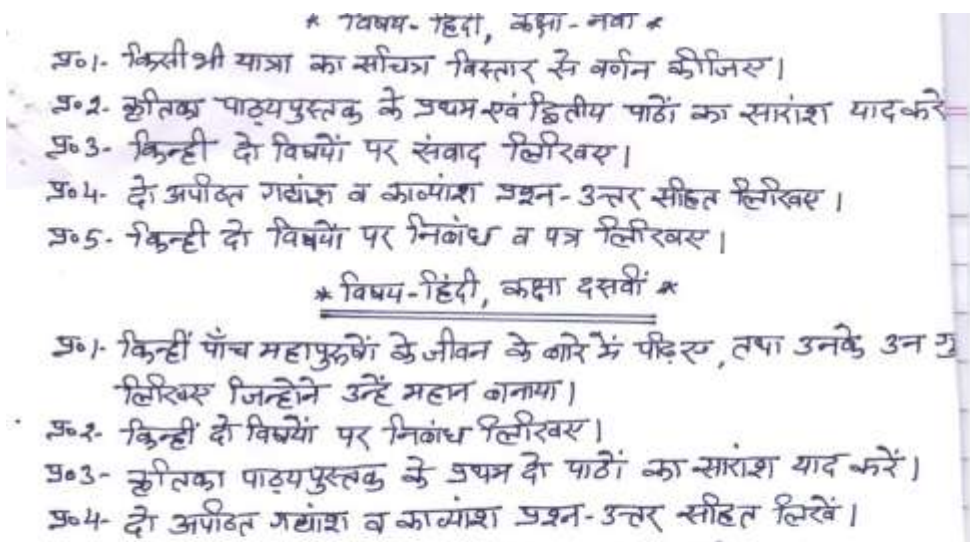 * विषय- हिंदी, कक्षा - नवी *
प्र०1- किसी भी यात्रा का सचित्र विस्तार से वर्णन कीजिए।
प्र०2- कृतिका पाठ्यपुस्तक के प्रथम एवं द्वितीय पाठों का सारांश याद करें
प्र०3- किन्ही दो विषयों पर संवाद लिखिए।
प्र०4- दो अपठित गद्यांश व काव्यांश प्रश्न-उत्तर सहित लिखिए।
प्र०5- किन्ही दो विषयों पर निबंध व पत्र लिखिए।
* विषय-हिंदी, कक्षा दसवीं *
प्र०1- किन्हीं पाँच महापुरुषों के जीवन के बारे में पढ़िए, तथा उनके उन
लिखिए जिन्होने उन्हें महान बनाया।
प्र०2- किन्हीं दो विषयों पर निबंध लिखिए।
प्र०3- कृतिका पाठ्यपुस्तक के प्रथम दो पाठों का सारांश याद करें।
प्र०4- दो अपठित गद्यांश व काव्यांश प्रश्न-उत्तर सहित लिखें।